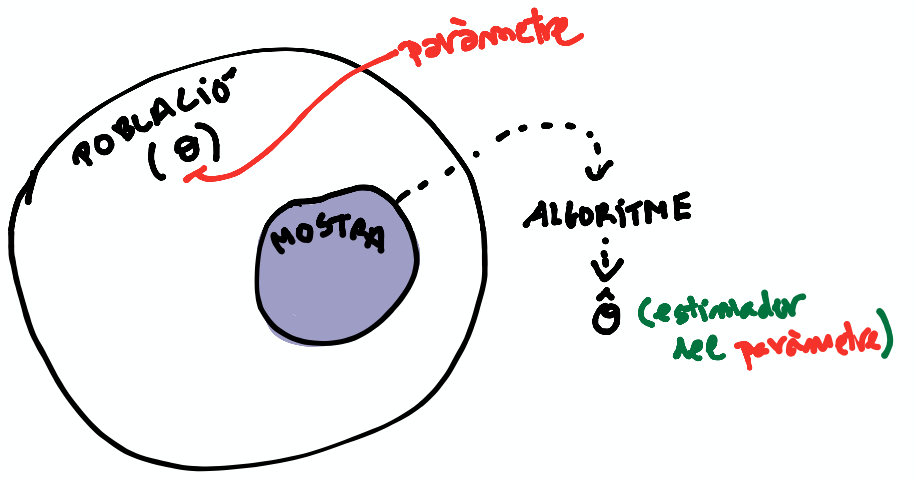 paràmetre
POBLACIÓ
(θ)
MOSTRA
ALGORITME
θ̂ (estimador
del paràmetre)